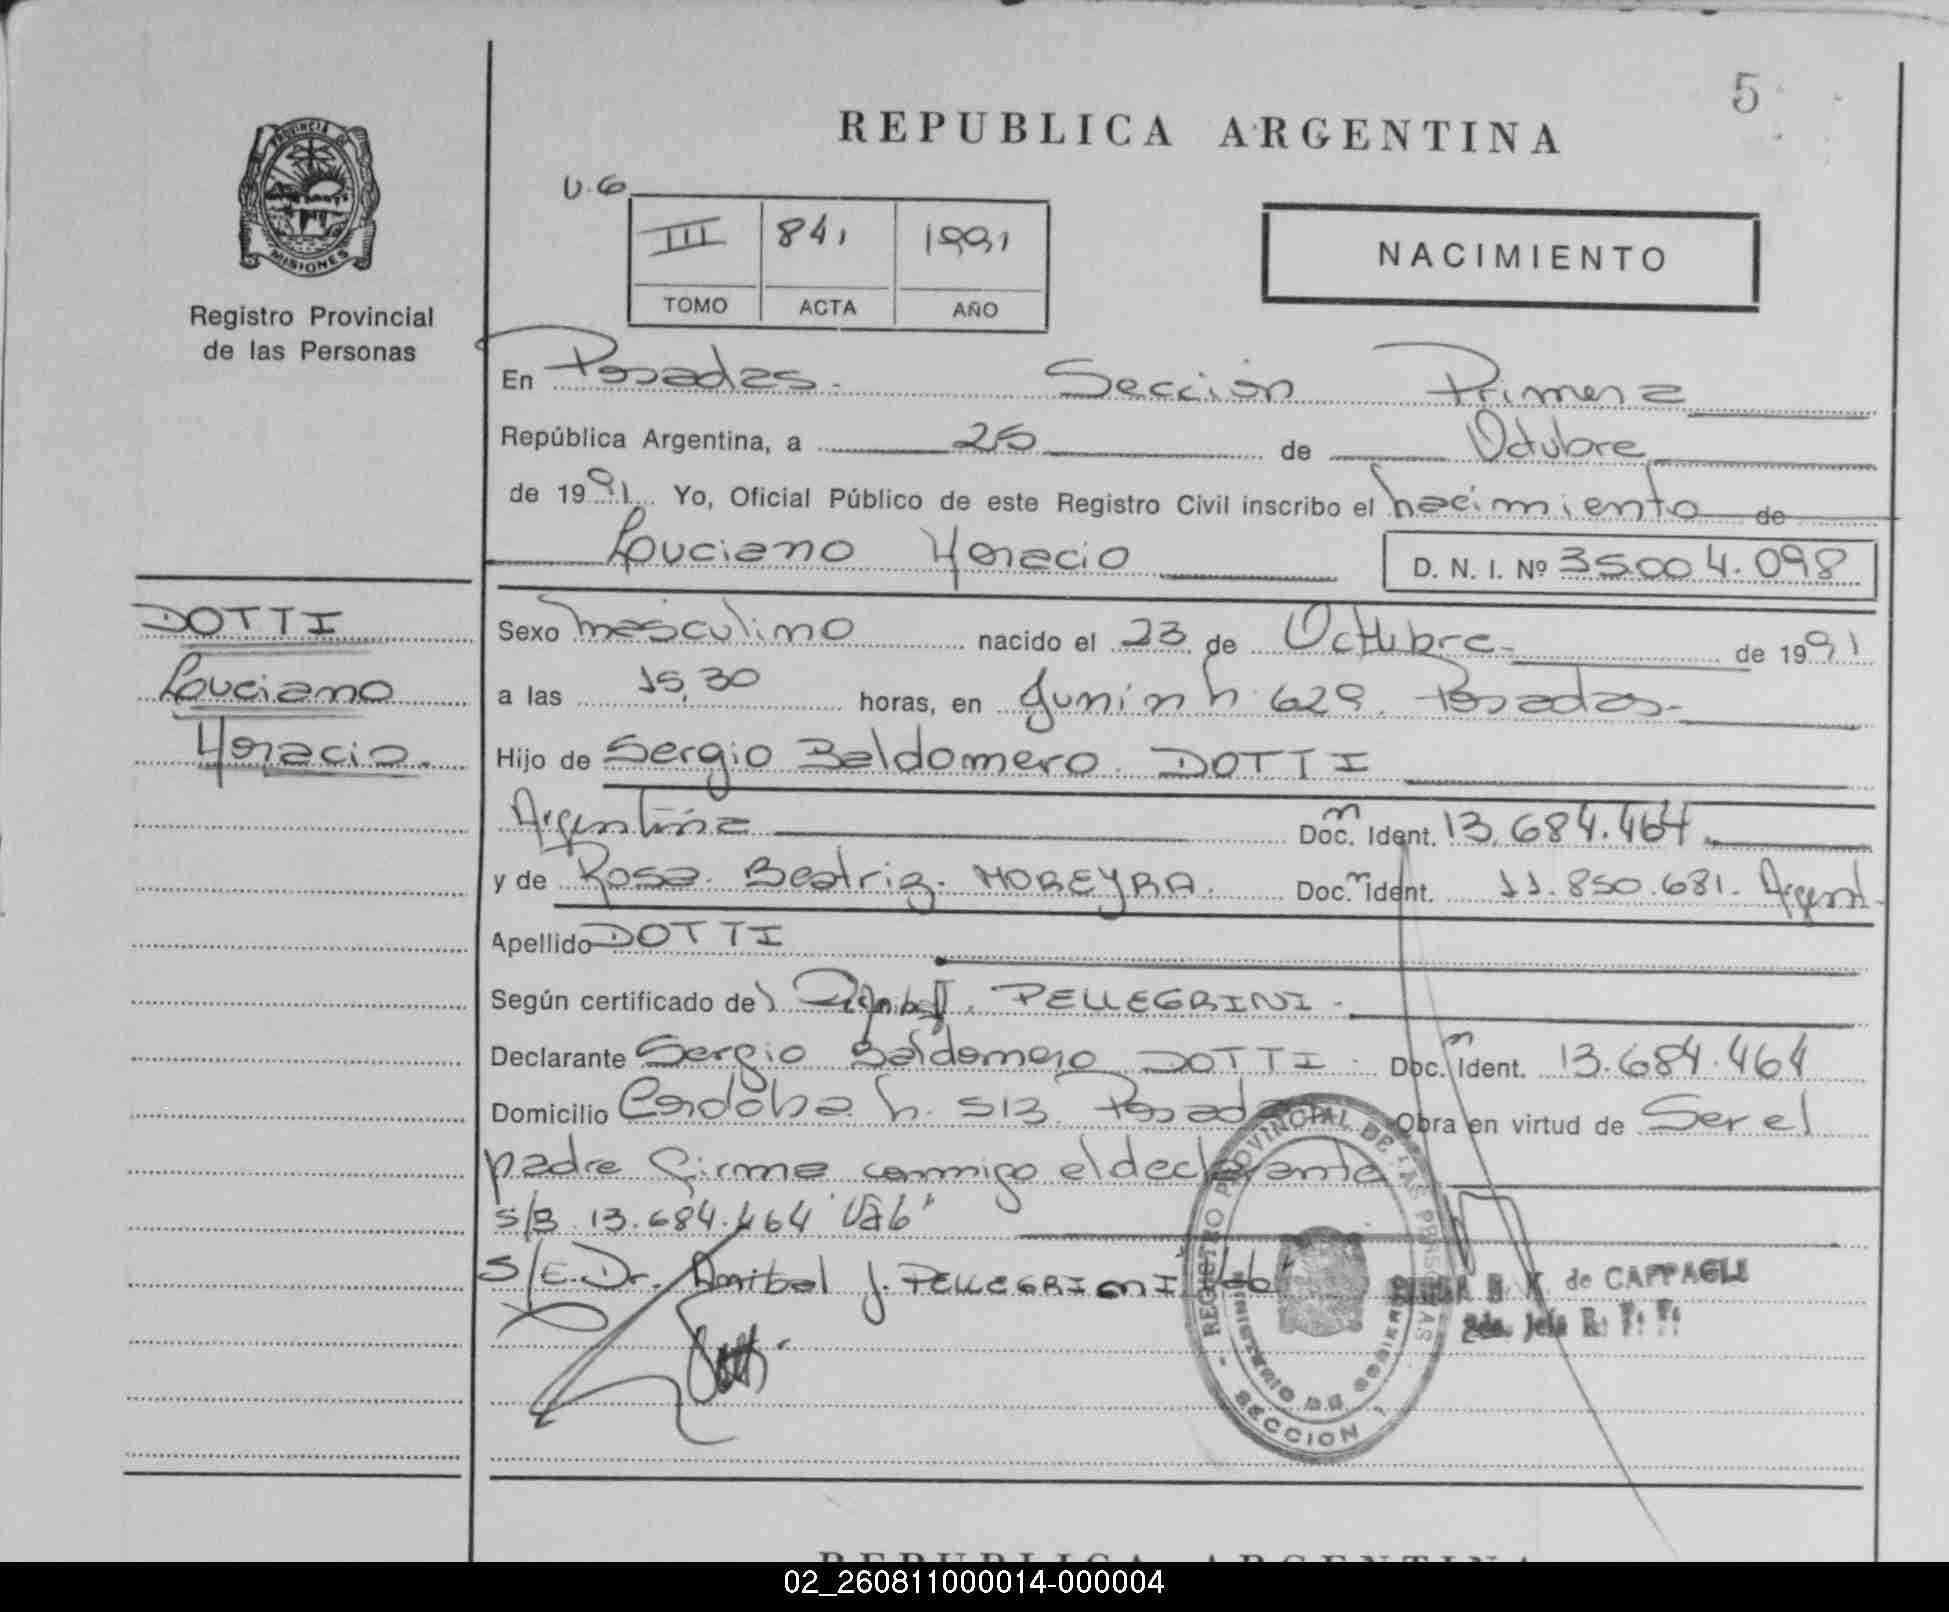 5
REPUBLICA ARGENTINA
PROVINCIA DE
MISIONES
Registro Provincial
de las Personas
U.G
III 841 1991
TOMO ACTA AÑO
NACIMIENTO
En Posadas.- Sección Primera
República Argentina, a 25 de Octubre
de 1991. Yo, Oficial Público de este Registro Civil inscribo el nacimiento de
Luciano Horacio
D. N. I. Nº 35.004.098
DOTTI
Luciano
Horacio.
Sexo masculino nacido el 23 de Octubre.- de 1991
a las 15,30 horas, en Junín n. 629. Posadas.-
Hijo de Sergio Baldomero. DOTTI
Argentina Doc. Ident. 13.684.464.
y de Rosa. Beatriz. MOREYRA. Doc. Ident. 11.850.681. Argent.
Apellido DOTTI
Según certificado del PELLEGRINI.
Declarante Sergio Baldomero DOTTI. Doc. Ident. 13.684.464
Domicilio Cordoba n. 513. Posadas Obra en virtud de Ser el
padre firma conmigo el declarante
s/B. 13.684.464 "Vale"
S/E. Dr. Anibal J. PELLEGRINI
REGISTRO PROVINCIAL DE LAS PERSONAS
MINISTERIO DE GOBIERNO
SECCION 1
de CAPPAGLI
Jefa R. P. P.
REPUBLICA ARGENTINA
02_260811000014-000004